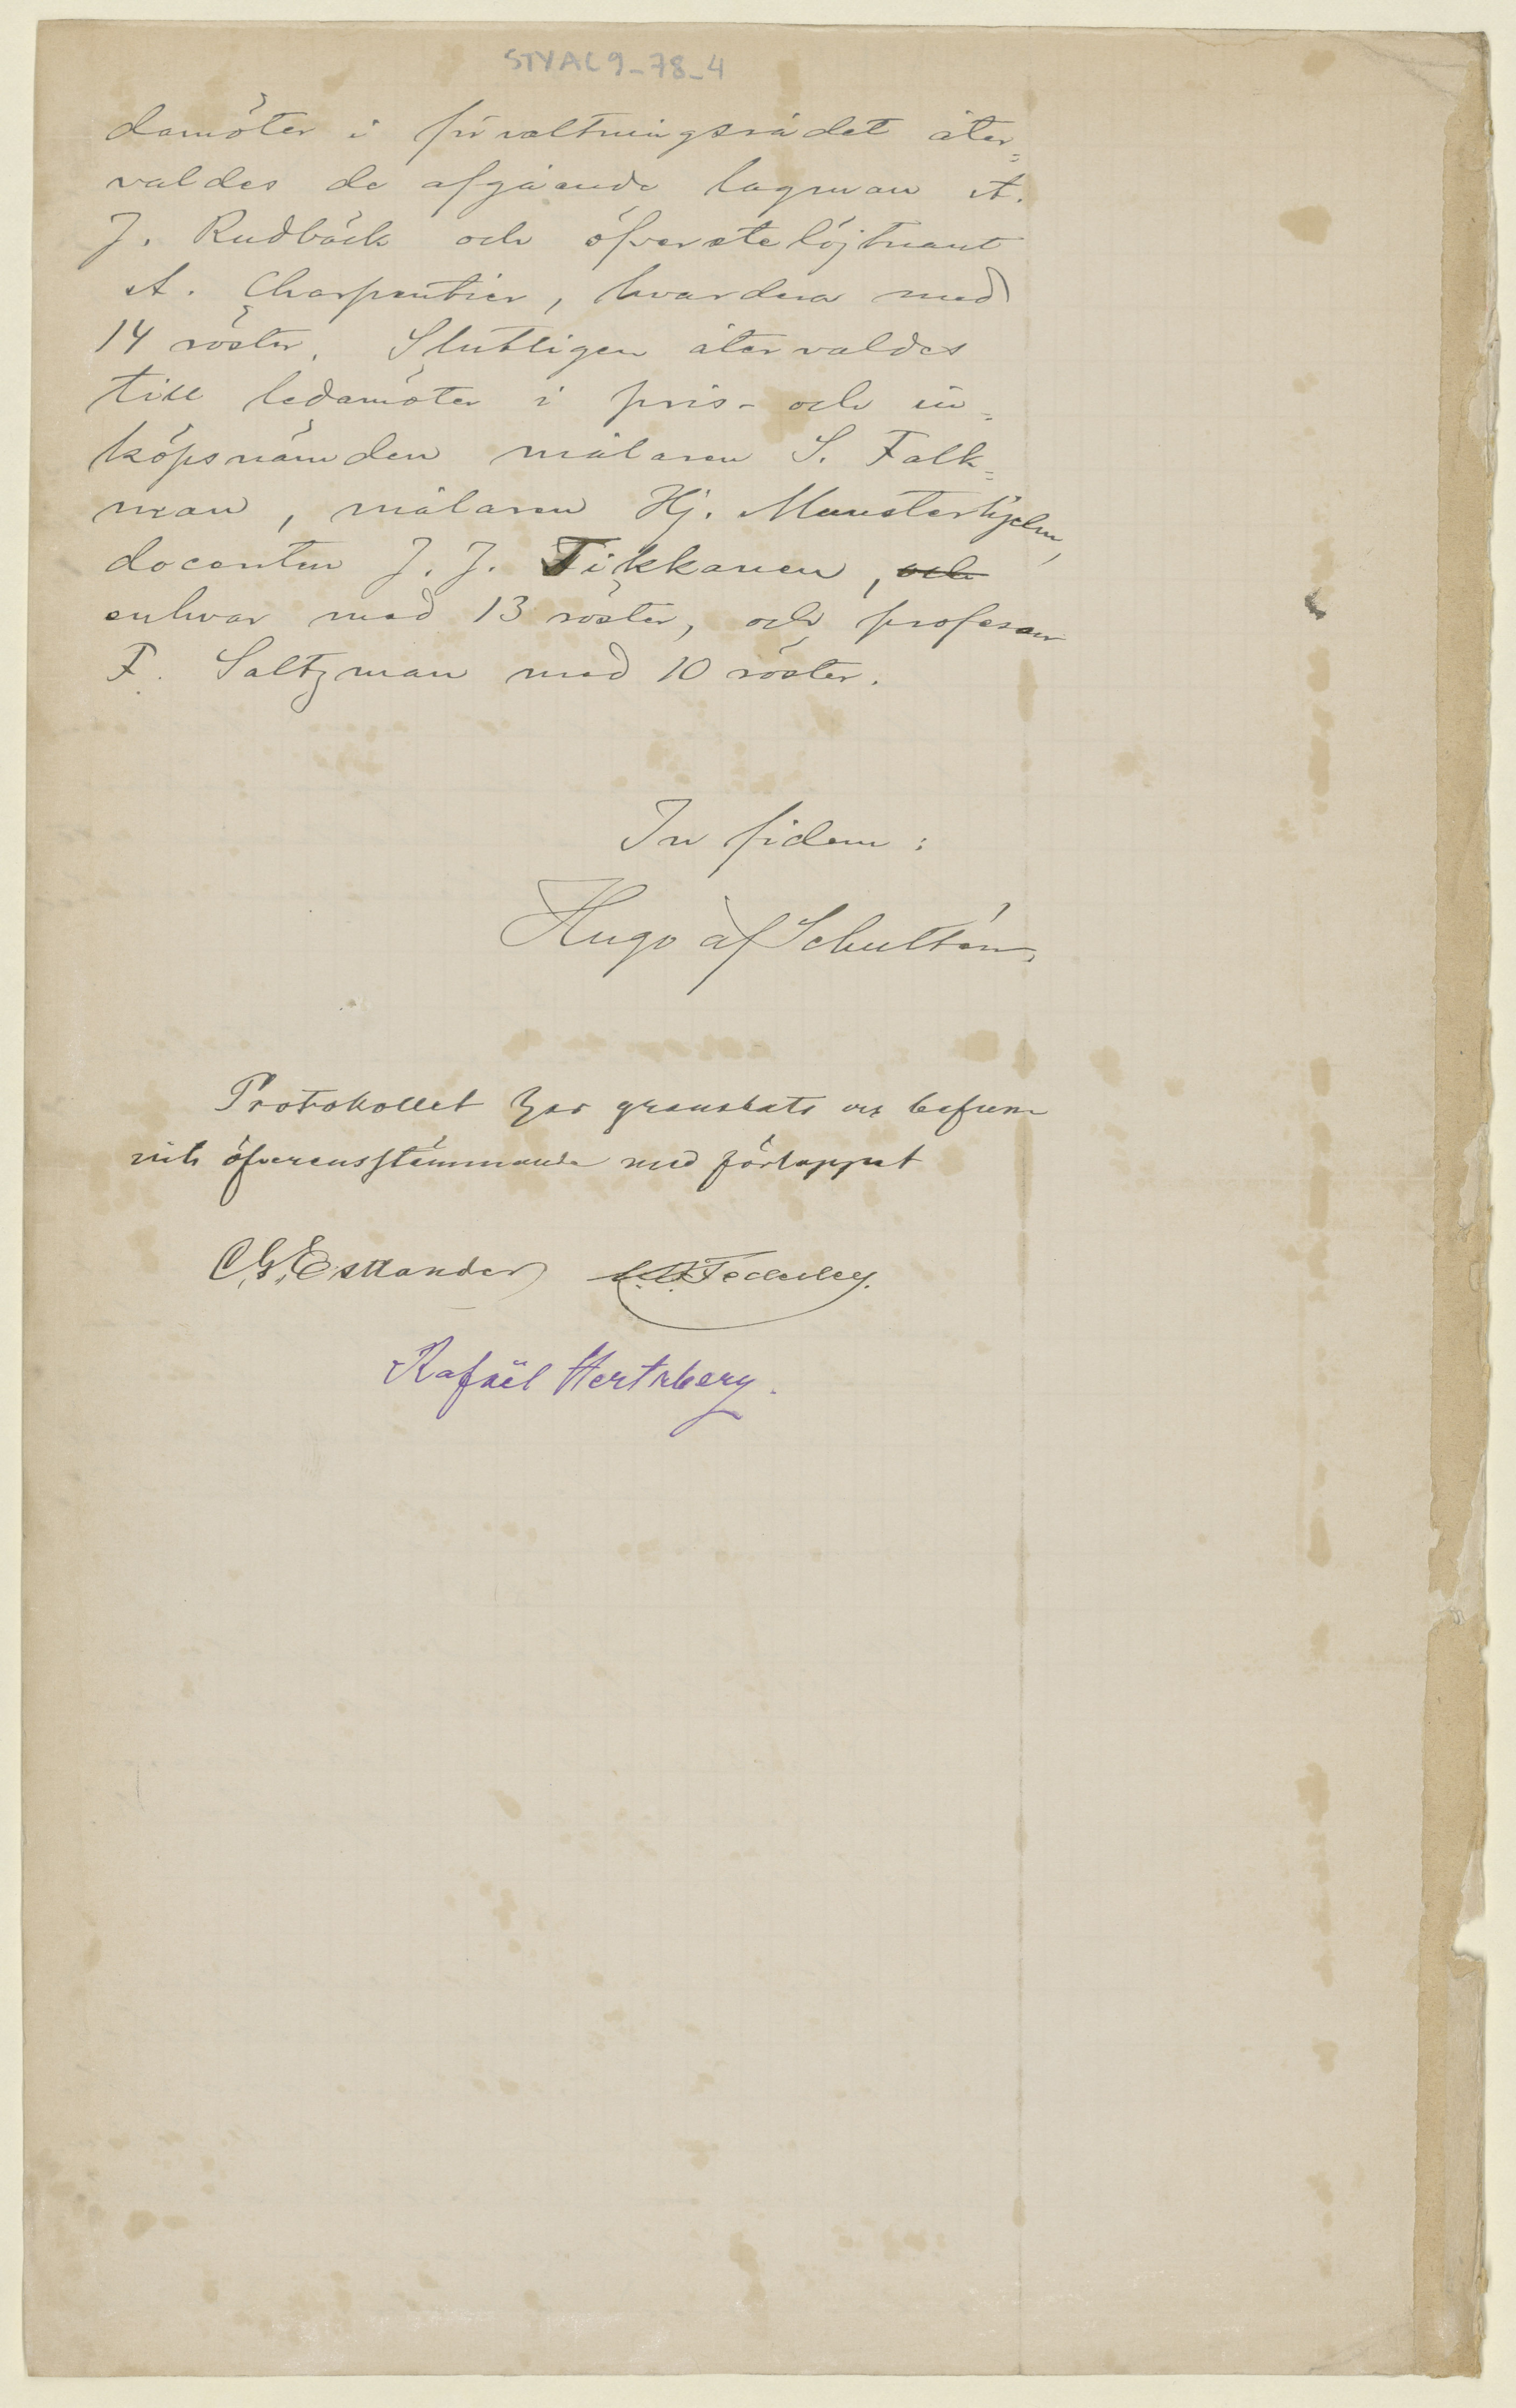 STYAC9_78_4
damöter i förvaltningsrådet åter=
valdes de afgående lagman A.
J. Rudbäck och öfverstelöjtnant
A. Charpentier, hvardera med
14 röster. Slutligen återvaldes
till ledamöter i pris- och in=
köpsnämden målaren S. Falk=
man, målaren Hj. Munsterhjelm,
docenten J. J. Tikkanen, och
enhvar med 13 röster, och professor
F. Saltzman med 10 röster.
In fidem:
Hugo af Schultén.
Protokollet har granskats och befun
nits öfverensstämmande med förloppet
C. G. Estlander
Rafaël Hertzberg.